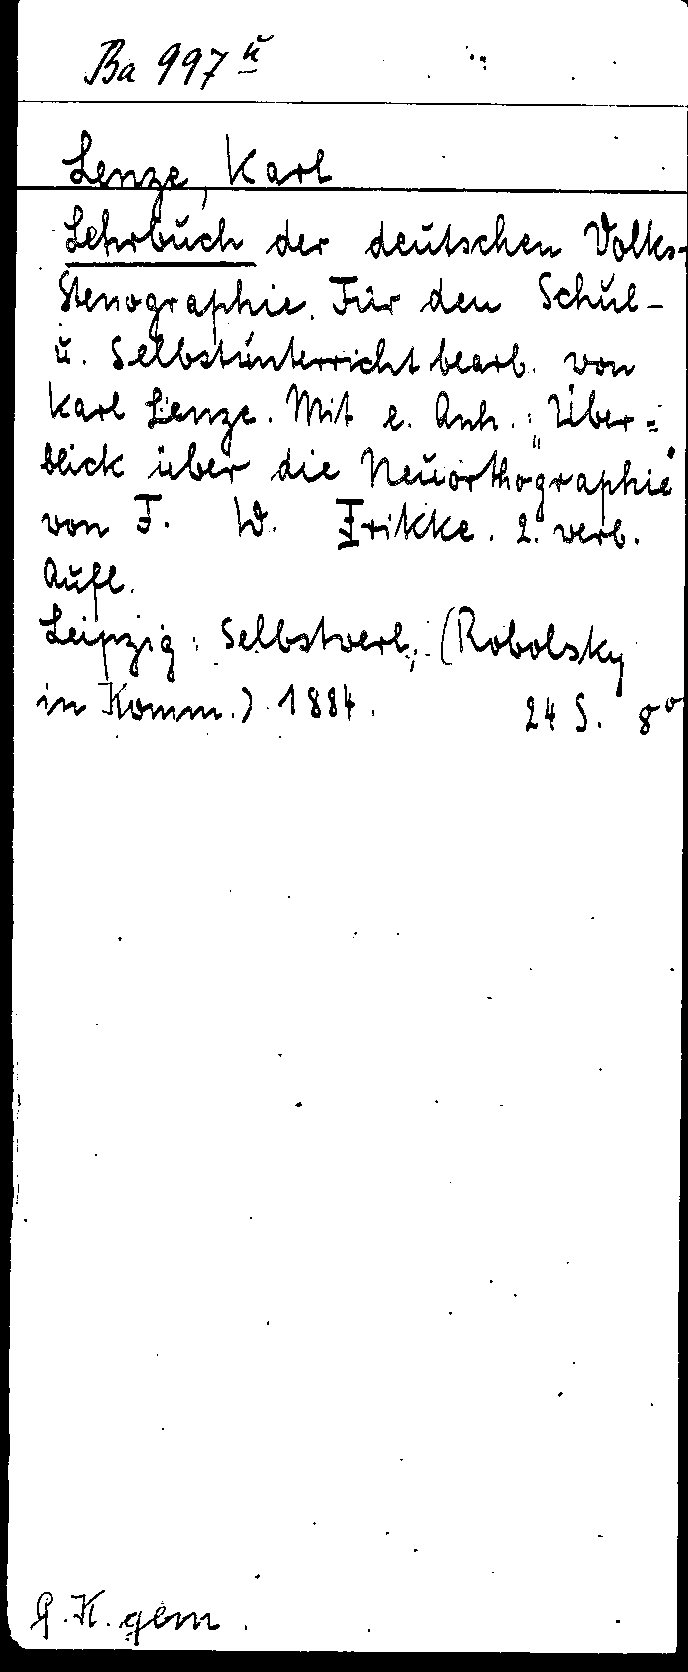 Ba 997 u
Lenze, Karl
Lehrbuch der deutschen Volks-
Stenographie. Für den Schul-
u. Selbstunterricht bearb. von
Karl Lenze. Mit e. Anh.: "Über-
blick über die Neuorthographie"
von F. W. Frikke. 2. verb.
Aufl.
Leipzig: Selbstverl.; (Robolsky
in Komm.) 1884. 24 S. 8°
G. K. gem.